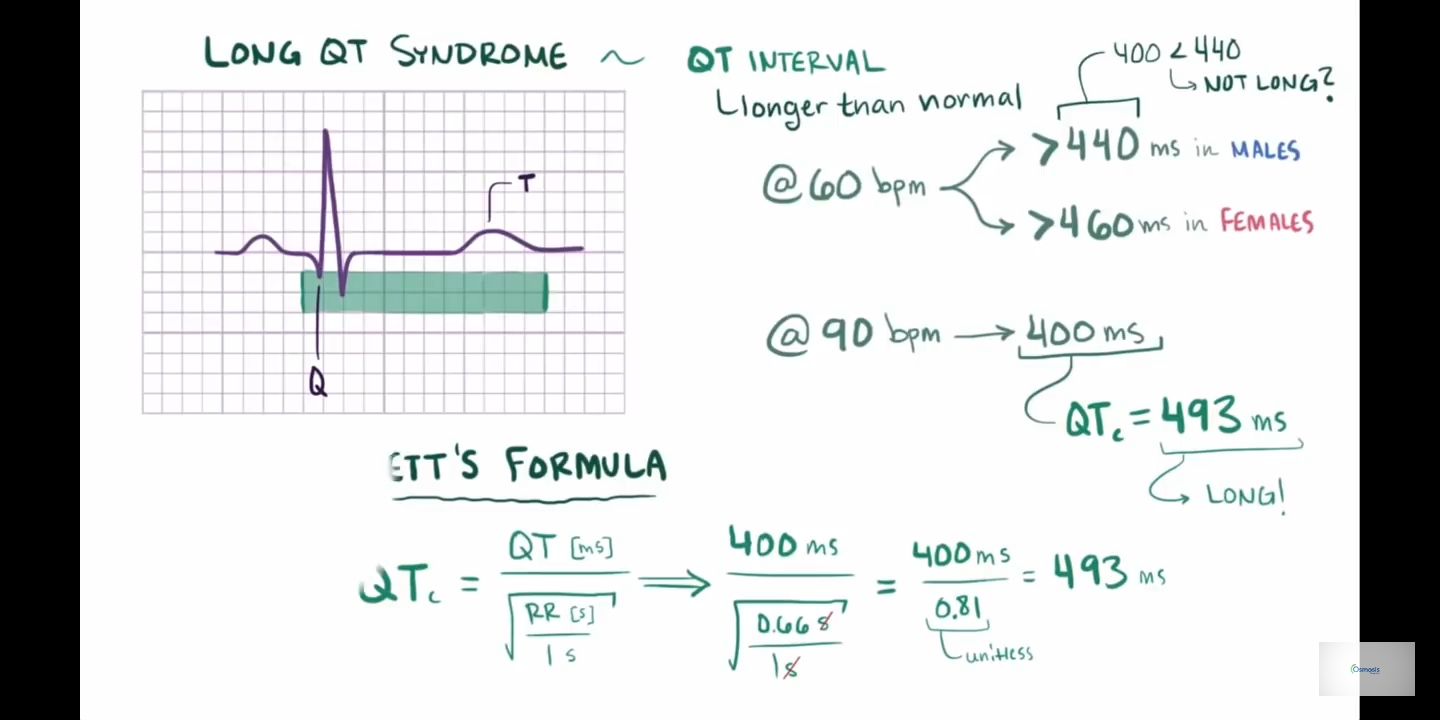 LONG QT SYNDROME ~ QT INTERVAL
Longer than normal
400 < 440
NOT LONG?
@ 60 bpm
>440 ms in MALES
>460 ms in FEMALES
T
Q
@ 90 bpm → 400 ms
QTc = 493 ms
LONG!
ETT'S FORMULA
QTc = QT [ms] / √(RR [s] / 1 s) ⟹ 400 ms / √(0.66 s / 1 s) = 400 ms / 0.81 = 493 ms
unitless
Osmosis